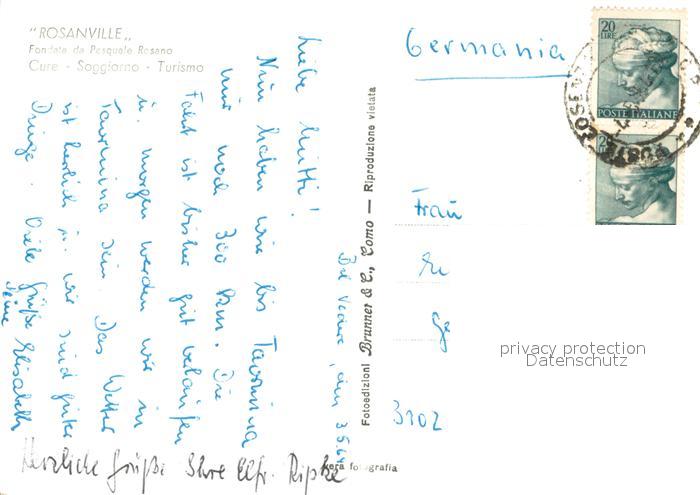 "ROSANVILLE„
Fondata da Pasquale Rosano
Cure - Soggiorno - Turismo
Liebe Mutti!
Nun haben wir bis Taormina
nur noch 300 km. Die
Fahrt ist bisher gut verlaufen
u. morgen werden wir in
Taormina sein. Das Wetter
ist herrlich u. wir sind guter
Dinge. Viele Grüße Deine Elisabeth
Herzliche Grüße Ihre Elfr. Ripke
am 3.5.64
Fotoedizioni Brunner & C., Como — Riproduzione vietata
vera fotografia
Germania
20
LIRE
POSTE ITALIANE
Frau
3102
privacy protection
Datenschutz